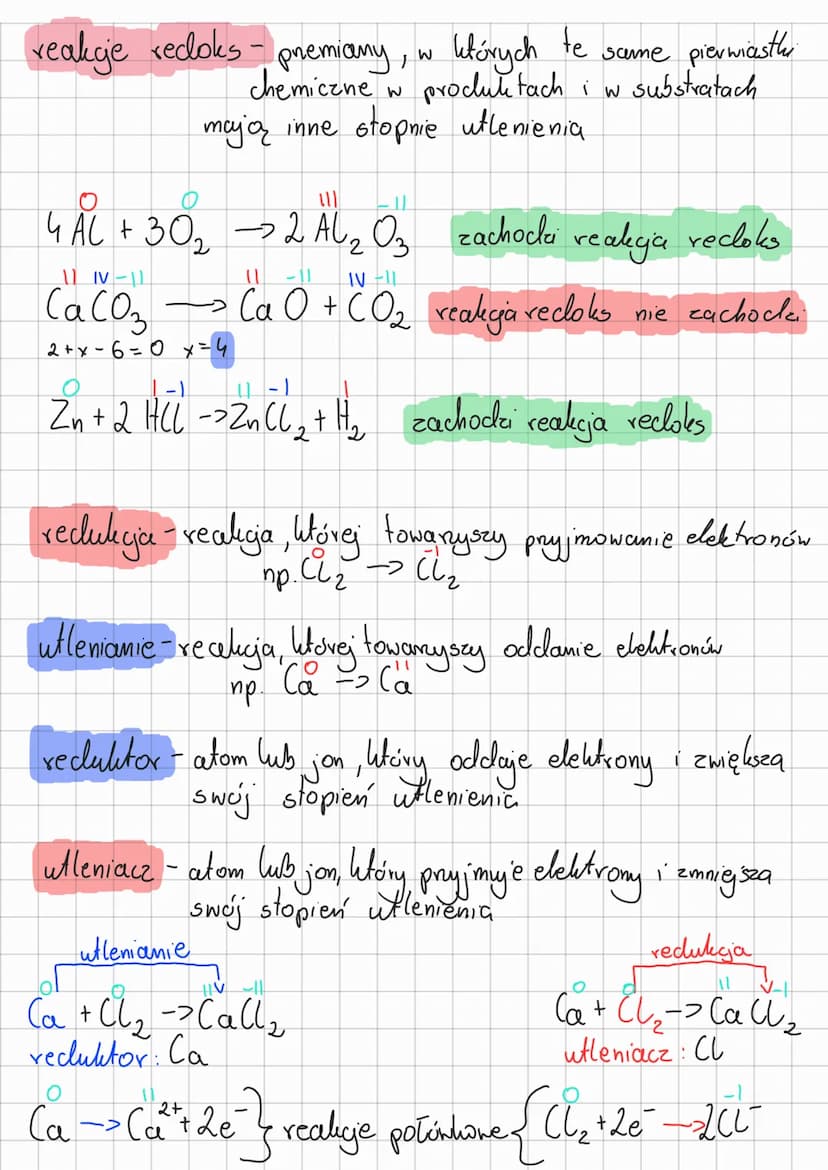 reakcje redoks - przemiany, w których te same pierwiastki
chemiczne w produktach i w substratach
mają inne stopnie utlenienia
0 0 III -II
4 Al + 3 O₂ → 2 Al₂ O₃ zachodzi reakcja redoks
II IV -II II -II IV -II
CaCO₃ → CaO + CO₂ reakcja redoks nie zachodzi
2+x-6=0 x=4
0 I -I II -I I
Zn + 2 HCl -> ZnCl₂ + H₂ zachodzi reakcja redoks
redukcja - reakcja, której towarzyszy przyjmowanie elektronów
0 -I
np. Cl₂ → Cl₂
utlenianie - reakcja, której towarzyszy oddanie elektronów
0 II
np. Ca -> Ca
reduktor - atom lub jon, który oddaje elektrony i zwiększa
swój stopień utlenienia
utleniacz - atom lub jon, który przyjmuje elektrony i zmniejsza
swój stopień utlenienia
utlenianie
0 0 II -II
Ca + Cl₂ -> CaCl₂
reduktor: Ca
redukcja
0 0 II -I
Ca + Cl₂ -> CaCl₂
utleniacz: Cl
0 II 0 -I
Ca -> Ca²⁺ + 2e⁻ } reakcje połówkowe { Cl₂ + 2e⁻ → 2Cl⁻